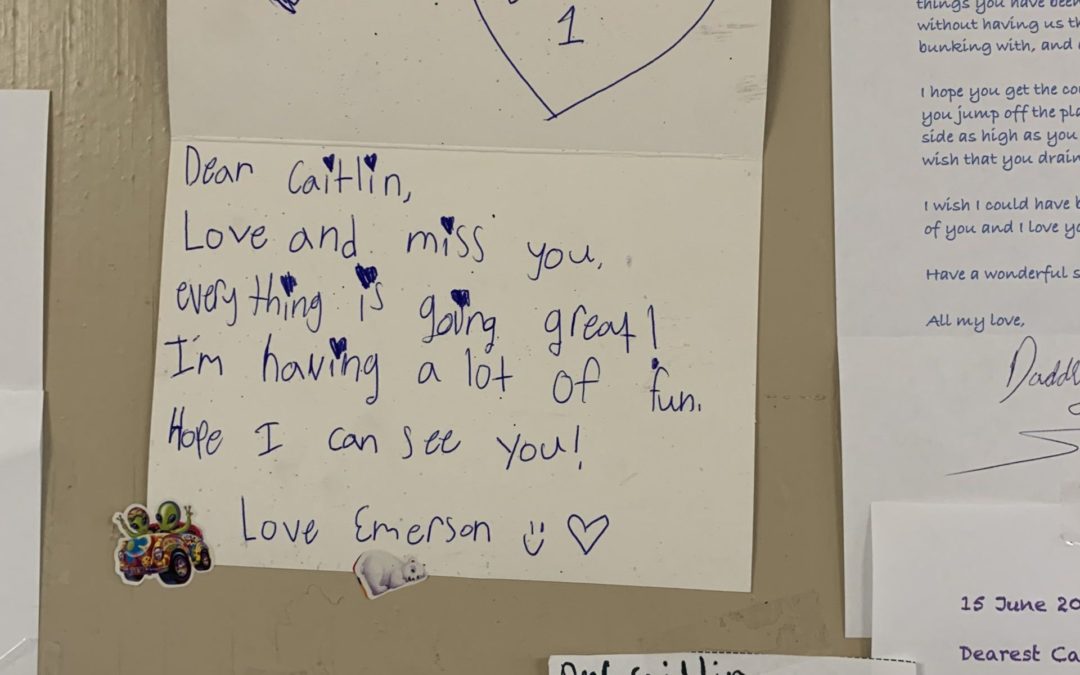 1
Dear Caitlin,
Love and miss you,
everything is going great!
I'm having a lot of fun.
Hope I can see you!
Love Emerson
things you have been
without having us
bunking with, and
I hope you get the
you jump off the
side as high as you
wish that you drain
I wish I could have
of you and I love
Have a wonderful
All my love,
Daddy
15 June
Dearest
Caitlin